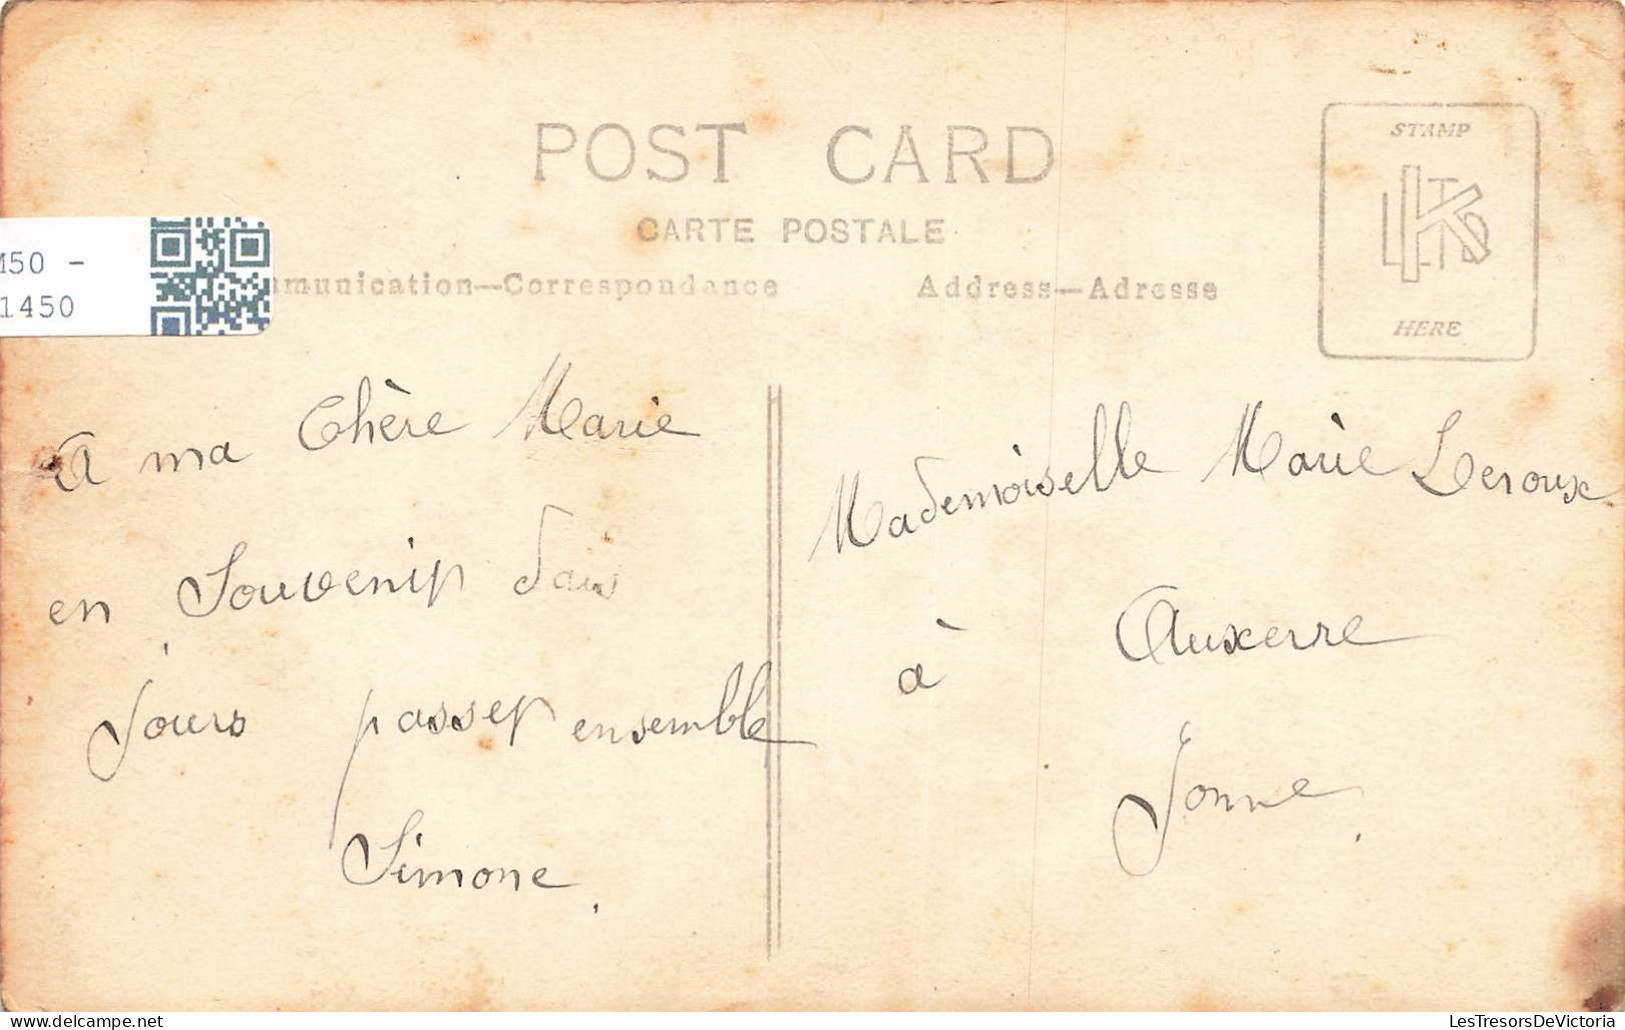 POST CARD
CARTE POSTALE
M50 -
1450
mmunication—Correspondance
Address—Adresse
STAMP
HERE
A ma Chère Marie
en Souvenir dans
Jours passer ensemble
Simone.
Mademoiselle Marie Leroux
à Auxerre
Yonne.
LesTresorsDeVictoria